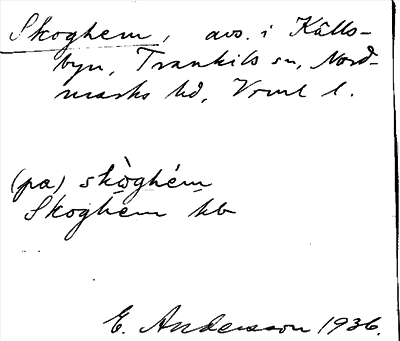 Skoghem, avs. i Källs-
byn, Trankils sn, Nord-
marks hd, Vrml l.
(pa) skòghém
Skoghem hb
E. Andersson 1936.